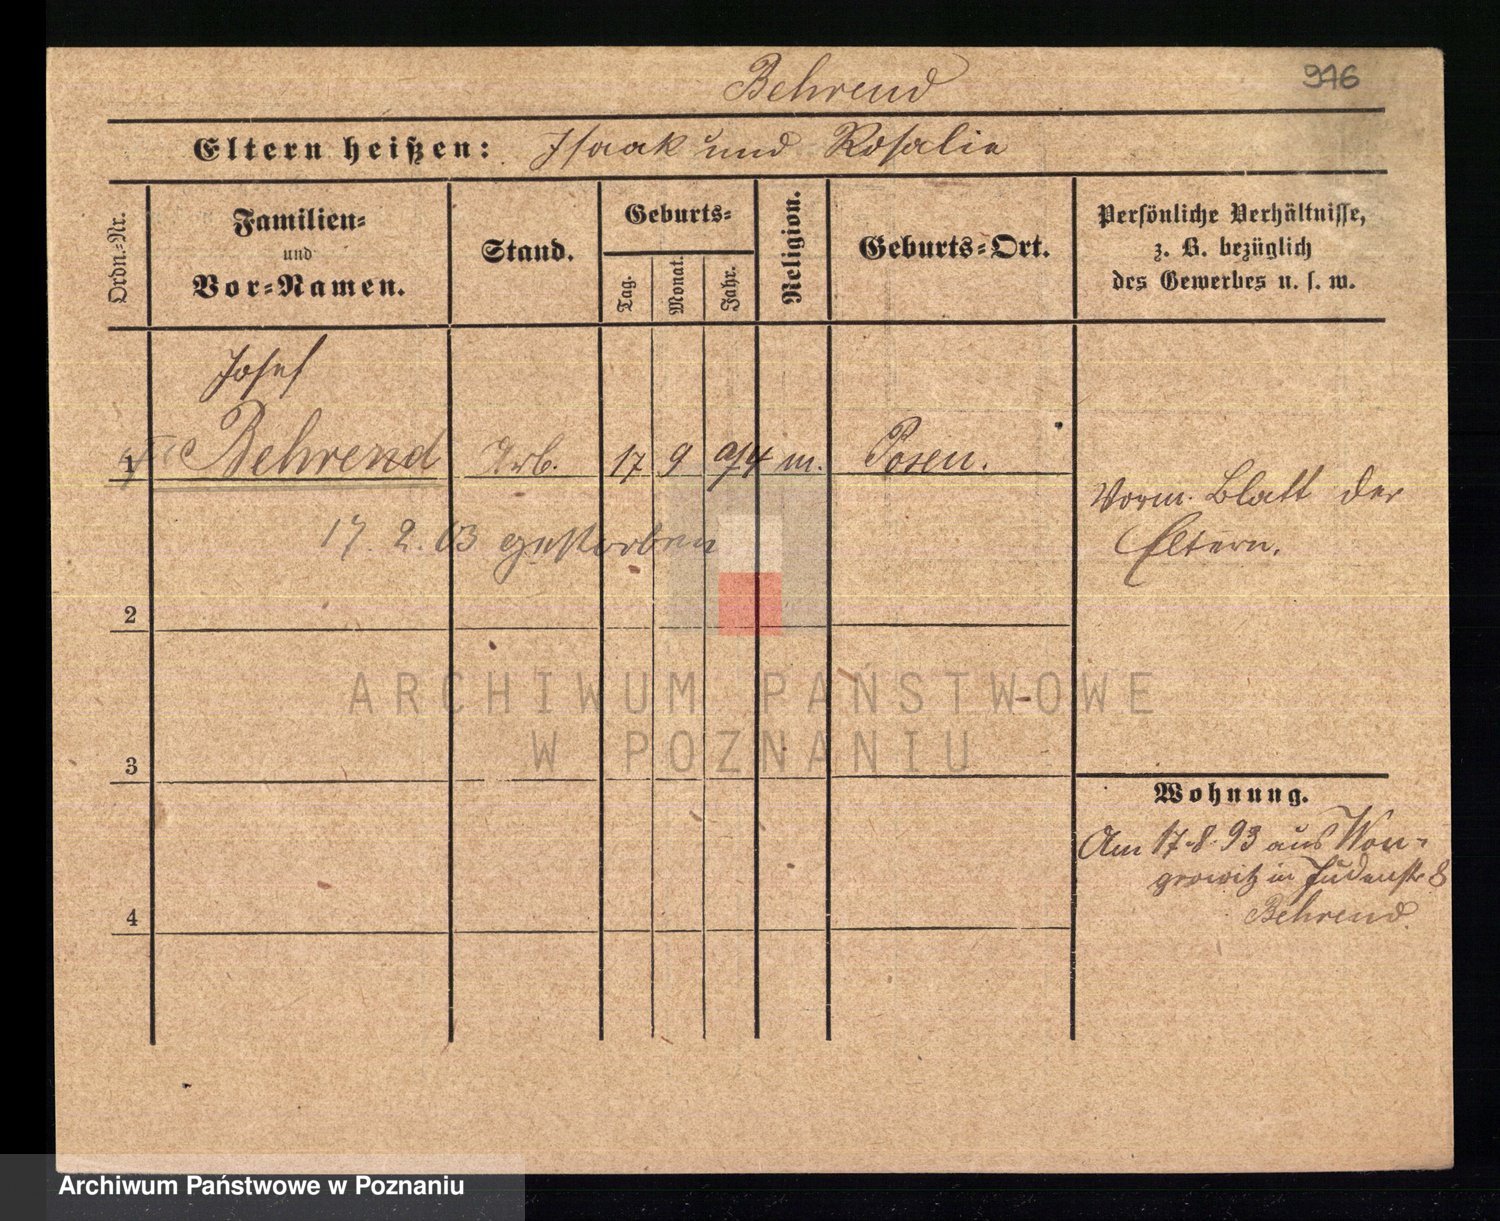 Behrend
976
Eltern heißen: Isaak und Rosalie
Ordn.-Nr.
Familien-
und
Vor-Namen.
Stand.
Geburts-
Tag.
Monat.
Jahr.
Religion.
Geburts-Ort.
Persönliche Verhältnisse,
z. B. bezüglich
des Gewerbes u. s. w.
Josef
1 Behrend Arb. 17 9 74 m. Posen.
Vorm. Blatt der
Eltern.
17. 2. 03 gestorben
2
3
4
Wohnung.
Am 17.8.93 aus Won-
growitz in Judenstr 8
Behrend.
ARCHIWUM PAŃSTWOWE
W POZNANIU
Archiwum Państwowe w Poznaniu